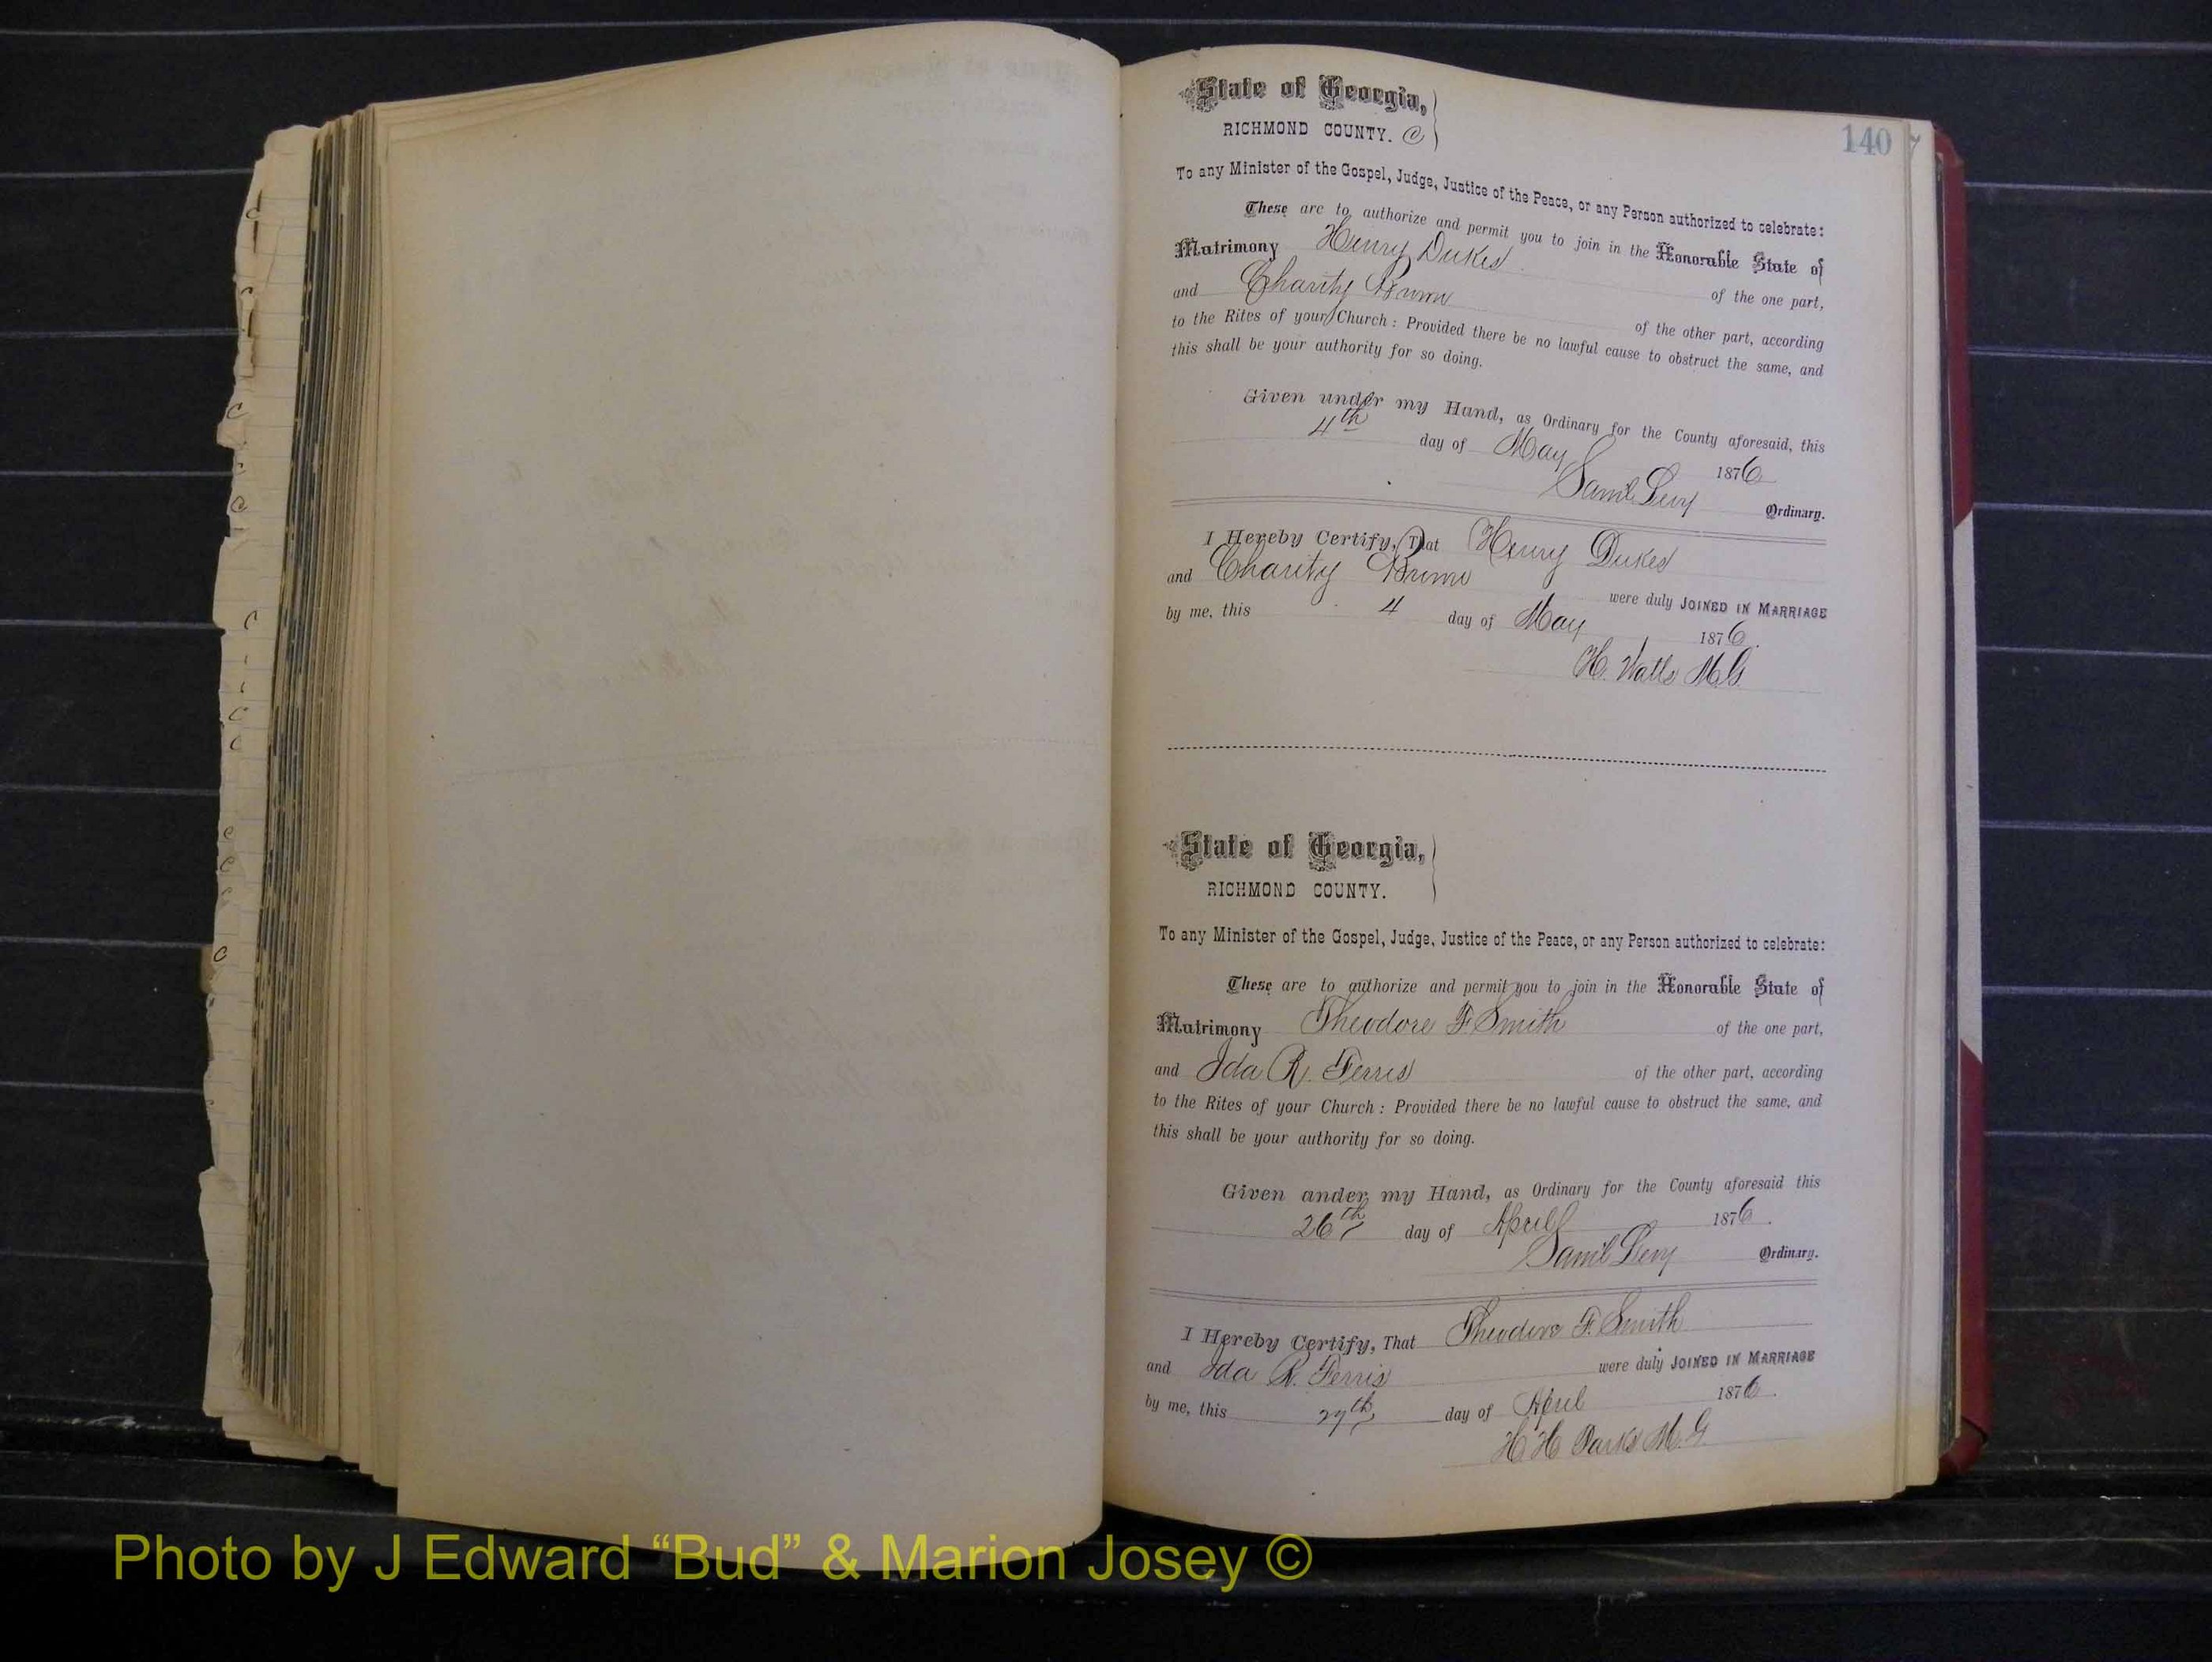 140
State of Georgia,
RICHMOND COUNTY. C
To any Minister of the Gospel, Judge, Justice of the Peace, or any Person authorized to celebrate:
These are to authorize and permit you to join in the Honorable State of
Matrimony Henry Dukes of the one part,
and Charity of the other part, according
to the Rites of your Church: Provided there be no lawful cause to obstruct the same, and
this shall be your authority for so doing.
Given under my Hand, as Ordinary for the County aforesaid, this
4th day of May 1876
Saml Levy Ordinary.
I Hereby Certify, That Henry Dukes
and Charity were duly JOINED IN MARRIAGE
by me, this 4 day of May 1876.
H. Watts M.G.
State of Georgia,
RICHMOND COUNTY.
To any Minister of the Gospel, Judge, Justice of the Peace, or any Person authorized to celebrate:
These are to authorize and permit you to join in the Honorable State of
Matrimony Theodore F. Smith of the one part,
and Ida R. Ferris of the other part, according
to the Rites of your Church: Provided there be no lawful cause to obstruct the same, and
this shall be your authority for so doing.
Given under my Hand, as Ordinary for the County aforesaid this
26th day of April 1876.
Saml Levy Ordinary.
I Hereby Certify, That Theodore F. Smith
and Ida R. Ferris were duly JOINED IN MARRIAGE
by me, this 27th day of April 1876.
H H Parks M.G
Photo by J Edward “Bud” & Marion Josey ©